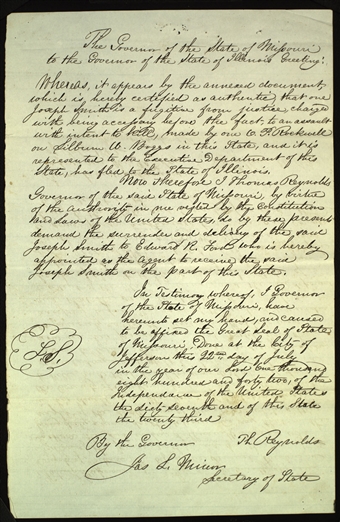 The Governor of the State of Missouri
to the Governor of the State of Illinois Greeting:
Whereas, it appears by the annexed document
which is hereby certified as authentic, that one
Joseph Smith is a fugitive from justice charged
with being accessory before the fact, to an assault
with intent to kill, made by one O. P. Rockwell
on Lilburn W. Boggs in this State, and it is
represented to the Executive Department of this
State, has fled to the State of Illinois.
Now Therefore I Thomas Reynolds
Governor of the said State of Missouri, by virtue
of the authority in me vested by the Constitution
and Laws of the United States, do by these presents
demand the surrender and delivery of the said
Joseph Smith to Edward R. Ford who is hereby
appointed as the agent to receive the said
Joseph Smith on the part of this State.
In Testimony whereof, I Governor
of the State of Missouri, have
hereunto set my hand, and caused
to be affixed the Great Seal of State
of Missouri, Done at the City of
Jefferson this 22nd day of July
in the year of our Lord one thousand
eight hundred and forty two, of the
Independence of the United States
the sixty seventh and of this State
the twenty third
L.S.
By the Governor Th Reynolds
Jas L. Minor
Secretary of State